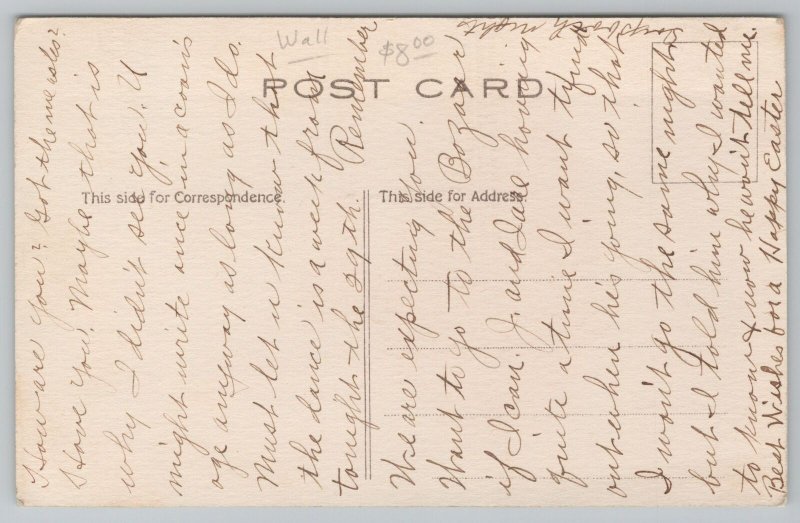 Wall
$8.00
POST CARD
This side for Correspondence.
This side for Address.
How are you? Got the measles?
Have you? Maybe that is
why I didn't see you? U
might write once in a coon's
age anyway as long as I do.
Must let u know that
the dance is a week from
tonight the 29th. Remember
We are expecting you.
Want to go to the Bozaar
if I can. J. and I are having
quite a time I want to find
out when he's going, so that
I won't go the same night
but I told him why I wanted
to know & now he won't tell me.
Best Wishes for a Happy Easter
both nights